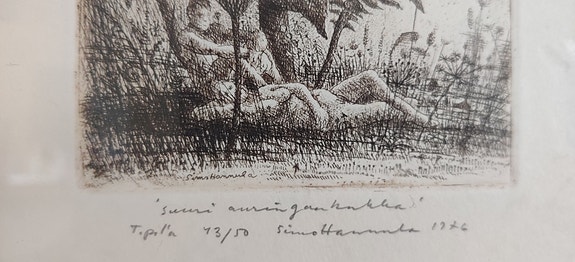 Simo Hannula
'Suuri auringonkukka'
T.p.l'a 43/50 Simo Hannula 1976